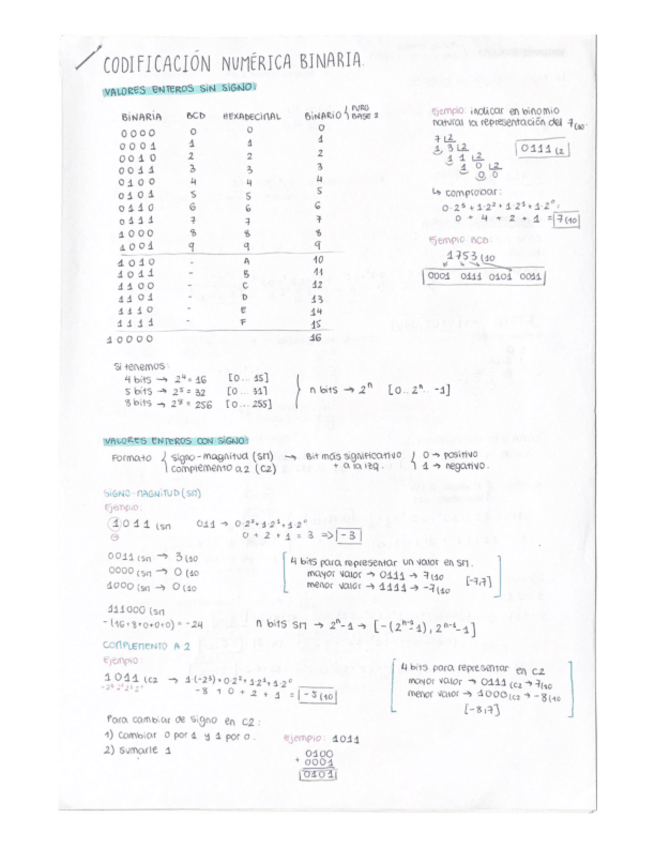 CODIFICACIÓN NUMÉRICA BINARIA.
VALORES ENTEROS SIN SIGNO:
BINARIA BCD HEXADECIMAL BINARIO { PURO BASE 2
0000 0 0 0
0001 1 1 1
0010 2 2 2
0011 3 3 3
0100 4 4 4
0101 5 5 5
0110 6 6 6
0111 7 7 7
1000 8 8 8
1001 9 9 9
1010 - A 10
1011 - B 11
1100 - C 12
1101 - D 13
1110 - E 14
1111 - F 15
10000 16
Ejemplo: indicar en binomio
natural la representación del 7(10.
7 |2
1 3 |2
1 1 |2
1 0 |2
0 0
0111 (2
↳ comprobar:
0·2³ + 1·2² + 1·2¹ + 1·2⁰ =
0 + 4 + 2 + 1 = 7(10
Ejemplo BCD:
1753 (10
0001 0111 0101 0011
Si tenemos:
4 bits → 2⁴ = 16 [0... 15]
5 bits → 2⁵ = 32 [0... 31]
8 bits → 2⁸ = 256 [0... 255]
n bits → 2ⁿ [0.. 2ⁿ -1]
VALORES ENTEROS CON SIGNO:
Formato { signo-magnitud (SM) → Bit más significativo { 0 → positivo
complemento a 2 (C2) + a la izq. 1 → negativo.
SIGNO-MAGNITUD (SM)
Ejemplo:
1011 (SM 011 → 0·2²+1·2¹+1·2⁰
⊖ 0 + 2 + 1 = 3 => -3
0011 (SM → 3 (10
0000 (SM → 0 (10
1000 (SM → 0 (10
4 bits para representar un valor en SM.
mayor valor → 0111 → 7(10
menor valor → 1111 → -7(10
[-7,7]
111000 (SM
-(16+8+0+0+0) = -24
n bits SM → 2ⁿ-1 → [-(2ⁿ⁻¹-1), 2ⁿ⁻¹-1]
COMPLEMENTO A 2
Ejemplo:
1011 (C2 → 1·(-2³)+0·2²+1·2¹+1·2⁰
-2³ 2² 2¹ 2⁰
-8 + 0 + 2 + 1 = -5 (10
4 bits para representar en C2
mayor valor → 0111 (C2 → 7(10
menor valor → 1000 (C2 → -8(10
[-8,7]
Para cambiar de signo en C2:
1) Cambiar 0 por 1 y 1 por 0.
2) Sumarle 1
Ejemplo: 1011
0100
+ 0001
0101